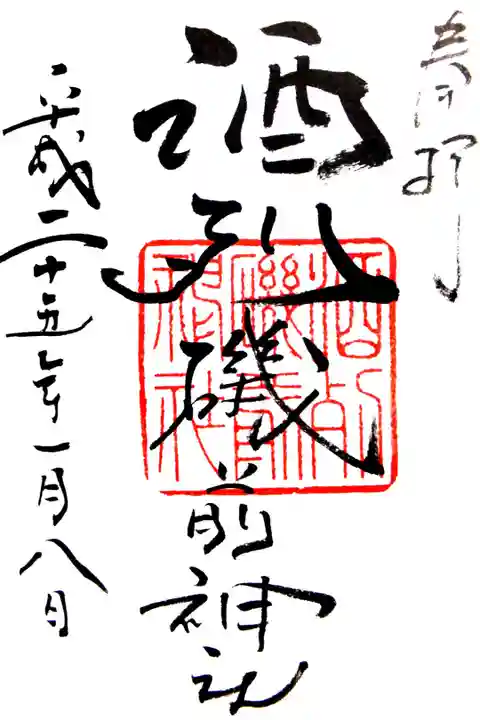 奉拝
酒列磯前神社
酒列磯前神社
平成二十五年一月八日